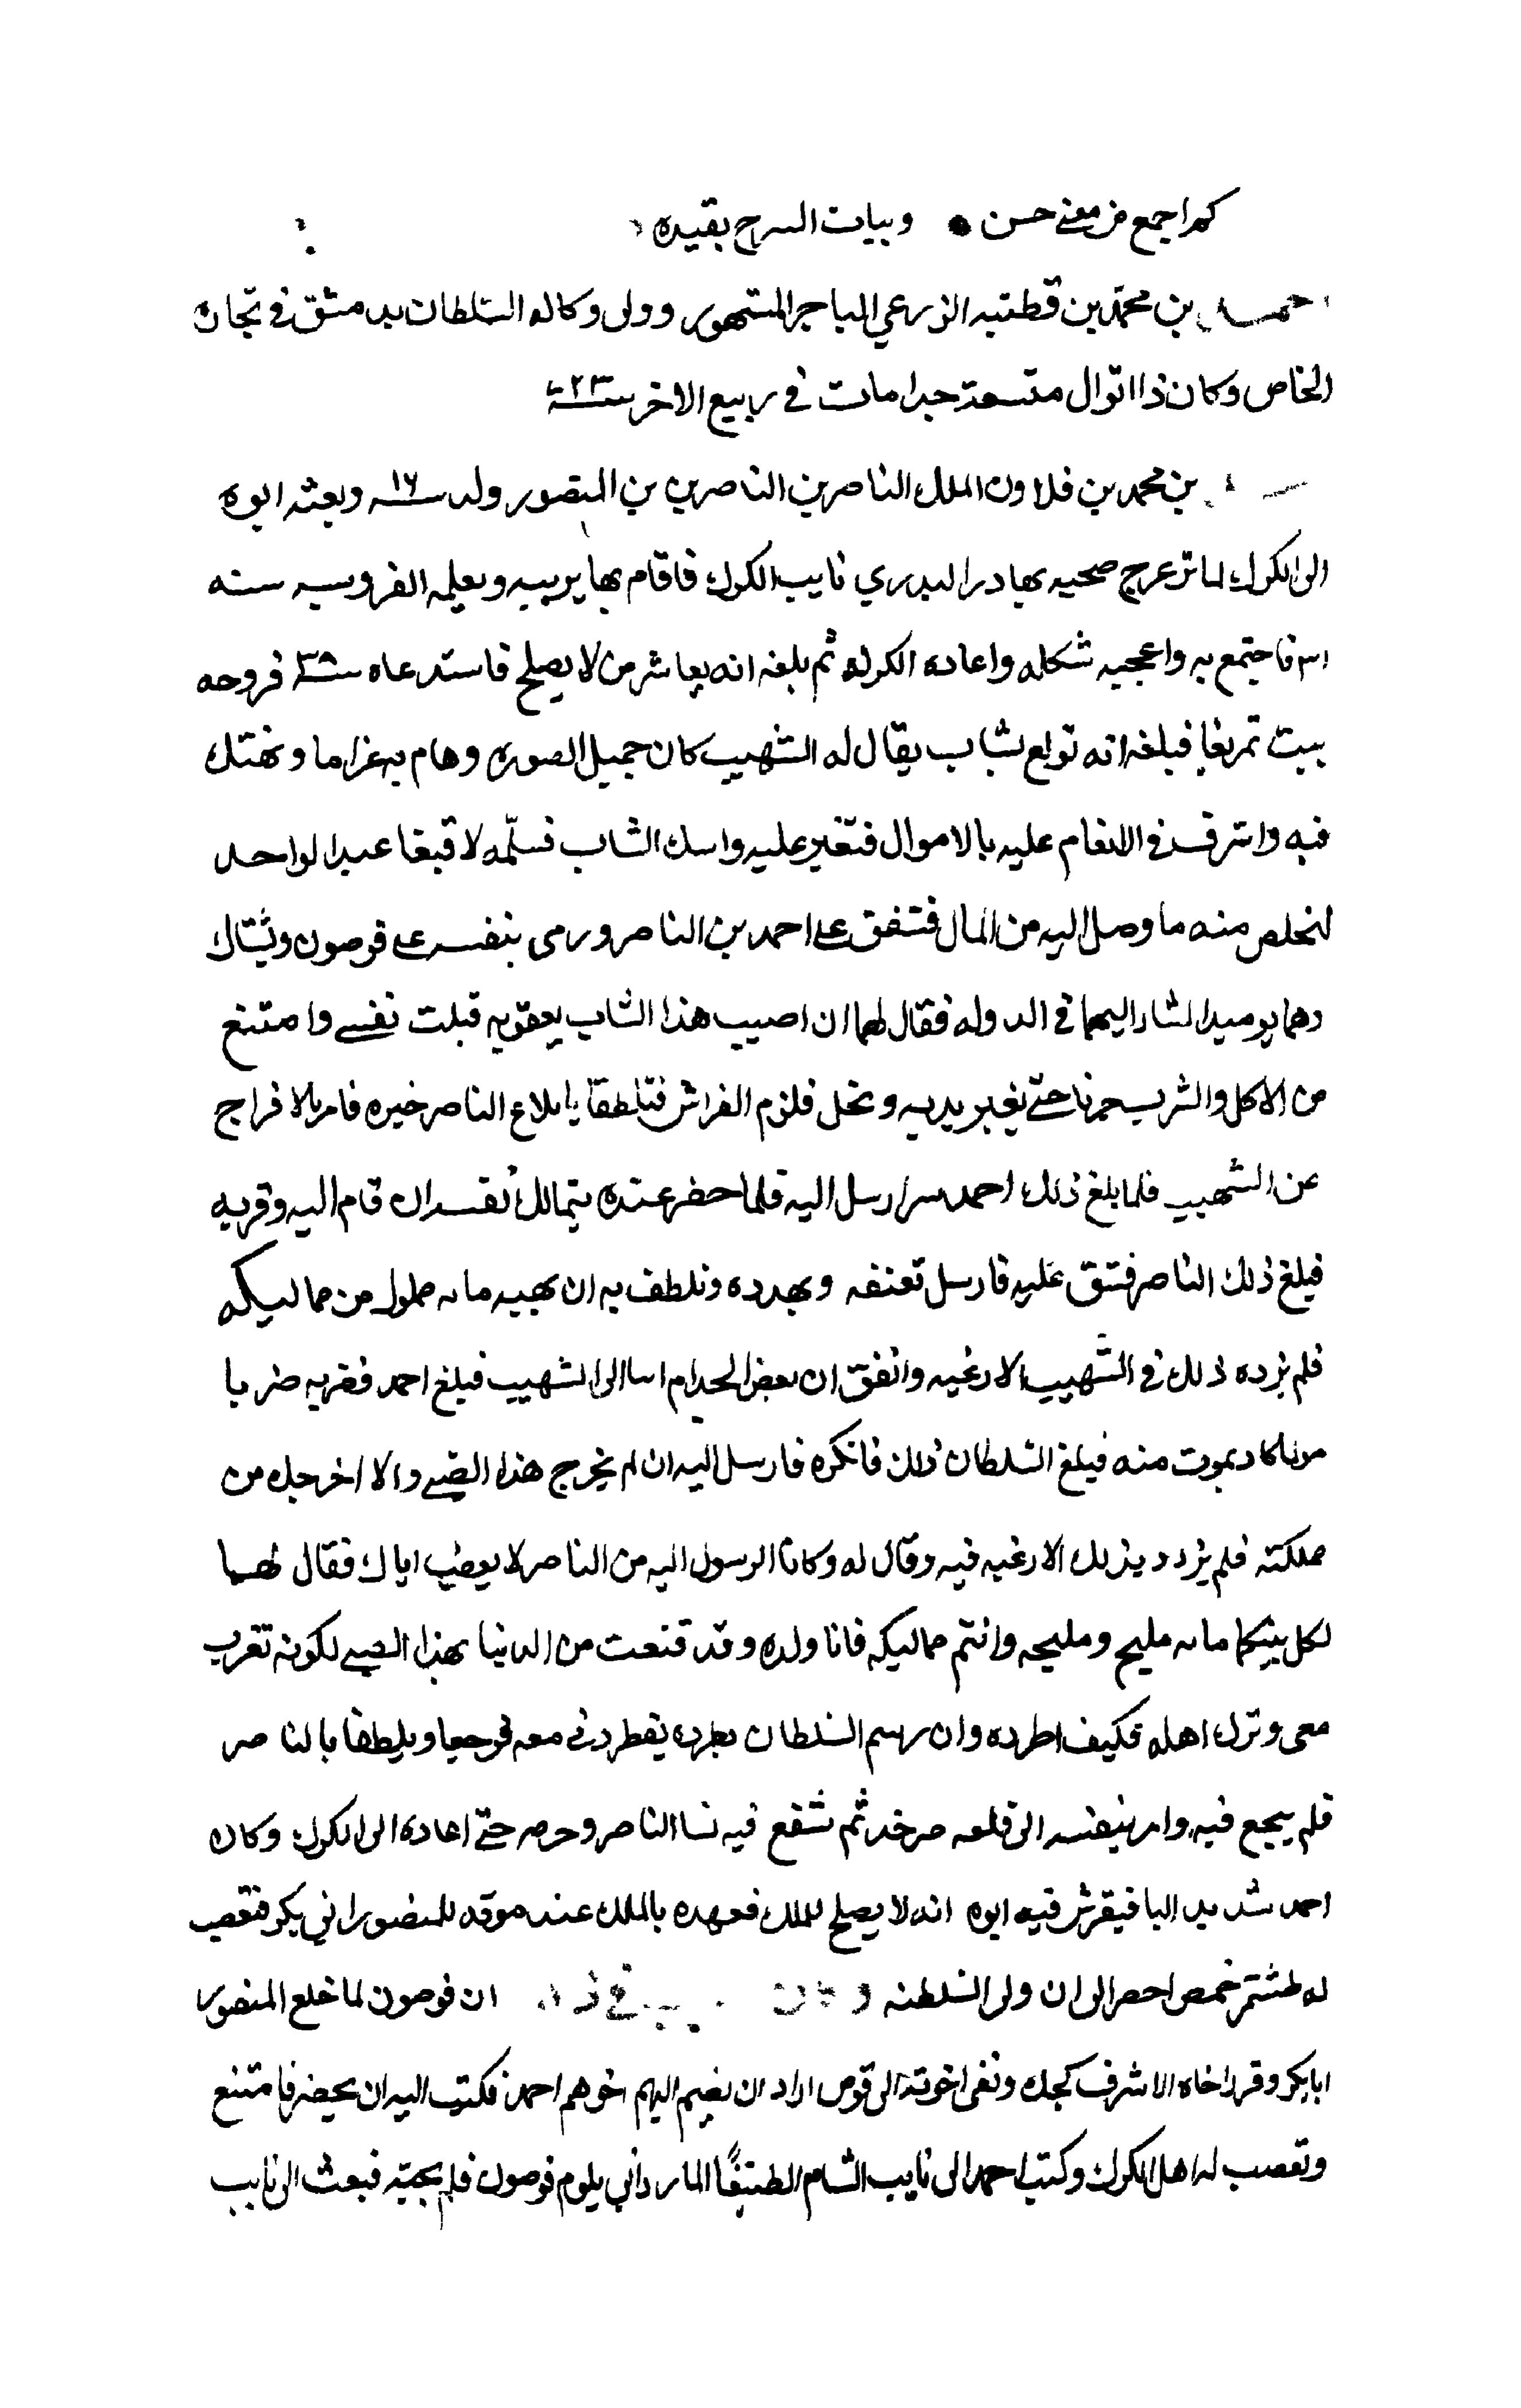 كم اجمع من معنى حسن • وبيات السرح بقيده
احمد بن محمد بن قطنبه الزرعي التاجر المشهور وولى وكاله السلطان بدمشق في تجاره
الخاص وكان ذا اموال متسعة جدا مات في ربيع الاخر سنة ٧٢٣
بن محمد بن قلاون الملك الناصر بن الناصر بن المنصور ولد سنه ١٦ وبعثه ابوه
الى الكرك لما ترعرع صحبه بهادر البدري نايب الكرك فاقام بها يربيه ويعلمه الفروسيه سنه
فاجتمع به واعجبه شكله واعاده الكرك ثم بلغه انه يعاشر من لا يصلح فاستدعاه سنه ٣٨ فزوجه
ببنت تمربغا فبلغه انه تولع بشاب يقال له الشهيب كان جميل الصوره وهام به غراما وتهتك
فيه واسرف في الانعام عليه بالاموال فتغير عليه وامسك الشاب فسلمه لاقبغا عبد الواحد
ليخلص منه ما وصل اليه من المال فشق على احمد بن الناصر ورمى بنفسه على قوصون وبشتاك
وهما يوميد المشار اليهما في الدوله فقال لهما ان اصيب هذا الشاب بعقوبه قتلت نفسي وامتنع
من الاكل والشرب حزنا حتى تغير بدنه ونحل فلزم الفراش فتلطفا بابلاغ الناصر خبره فامر بالافراج
عن الشهيب فلما بلغ ذلك احمد سرا رسل اليه فلما حضر عنده يتمالك نفسه ان قام اليه وقربه
فبلغ ذلك الناصر فشق عليه فارسل تعنفه ويهدده وتلطف به ان يهبه مايه مملوك من مماليكه
فلم يزده ذلك في الشهيب الا رغبه واتفق ان بعض الخدام اسا الى الشهيب فبلغ احمد فضربه ضربا
مولما كاد يموت منه فبلغ السلطان ذلك فانكره فارسل اليه ان لم يخرج هذا الصبي والا اخرجك من
مملكته فلم يزدد بذلك الا رغبه فيه وقال له وكانا الرسول اليه من الناصر لا يغضب اباك فقال لهما
لكل منكما مايه مليح ومليحه وانتم مماليكه فانا ولده وقد قنعت من الدنيا بهذا الصبي لكونه تغرب
معي وترك اهله فكيف اطرده وان رسم السلطان بطرده يطردني معه فرجعا وتلطفا بالناصر
فلم ينجع فيه وامر بنفيه الى قلعه صرخد ثم شفع فيه نسا الناصر وحرمه حتى اعاده الى الكرك وكان
احمد شديد الباس فتفرس فيه ابوه انه لا يصلح للملك فعهده بالملك عند موته للمنصور ابي بكر فتعصب
له طشتمر حمص اخضر الى ان ولي السلطنه وكان ان قوصون لما خلع المنصور
ابا بكر وقرر اخاه الاشرف كجك ونفى اخوته الى قوص اراد ان يضم اليهم اخوهم احمد فكتب اليه ان يحضر فامتنع
وتعصب له اهل الكرك وكتب احمد الى نايب الشام الطنبغا المارداني يلوم قوصون فلم يجبه فبعث الى نايب